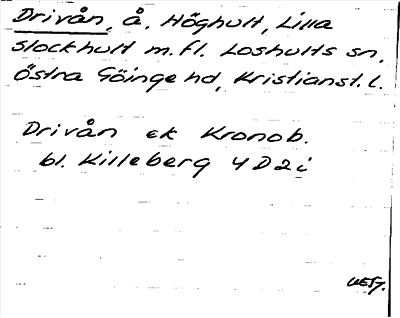 Drivån, å. Höghult, Lilla
Slockhult m.fl. Loshults sn,
Östra Göinge hd, Kristianst. l.
Drivån ek Kronob.
bl. Killeberg 4D2i